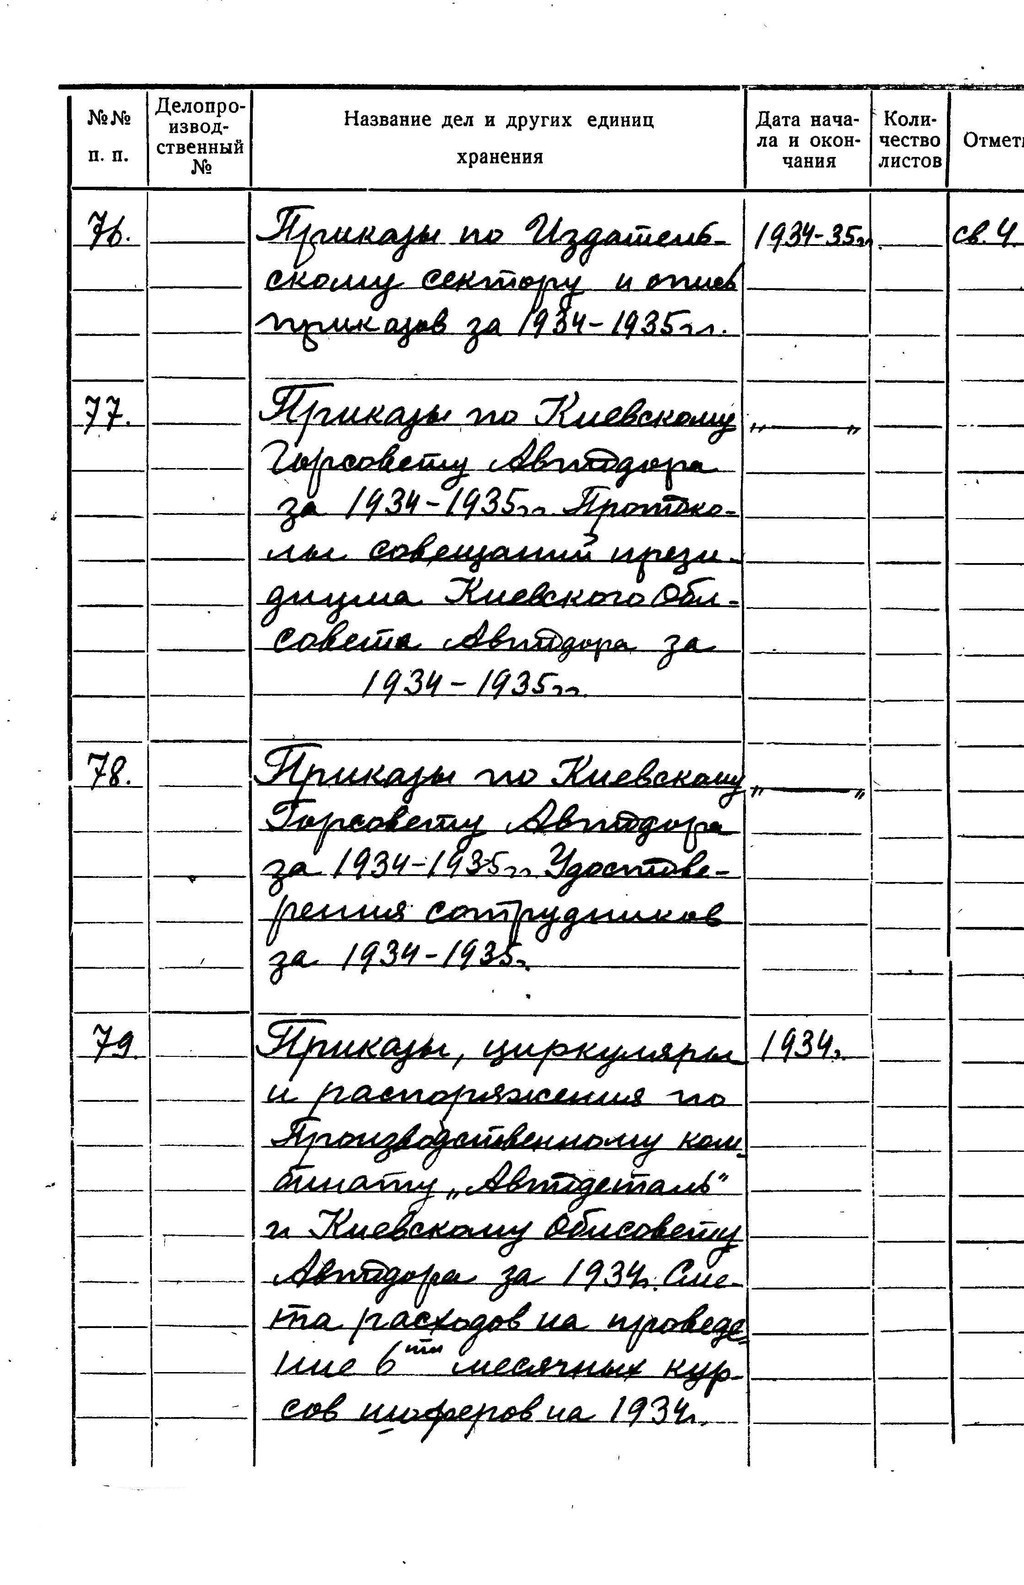 №№ п. п. Делопроизвод- ственный № Название дел и других единиц хранения Дата начала и окончания Количество листов
76. Приказы по Издатель- 1934-35гг. св. 4
скому сектору и опись
приказов за 1934-1935гг.
77. Приказы по Киевскому „ — "
Горсовету Автодора
за 1934-1935гг. Протоко-
лы совещаний прези-
диума Киевского Обл-
совета Автодора за
1934-1935гг.
78. Приказы по Киевскому „ — "
Горсовету Автодора
за 1934-1935гг. Удостове-
рения сотрудников
за 1934-1935г.
79. Приказы, циркуляры 1934г.
и распоряжения по
Производственному ком-
бинату „Автодеталь"
и Киевскому Облсовету
Автодора за 1934г. Сме-
та расходов на проведе-
ние 6ти месячных кур-
сов шоферов на 1934г.